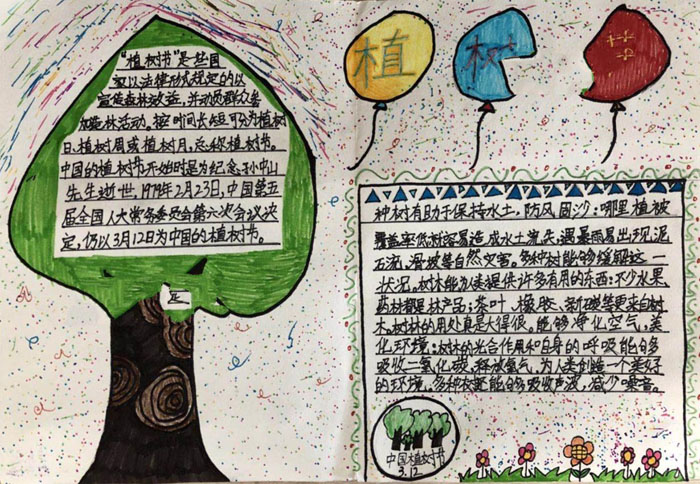 植
树
节
“植树节”是些国
家以法律形式规定的以
宣传森林效益,并动员群众参
加造林活动。按时间长短可分为植树
日、植树周或植树月,总称植树节。
中国的植树节开始时是为纪念孙中山
先生逝世,1979年2月23日,中国第五
届全国人大常务委员会第六次会议决
定,仍以3月12日为中国的植树节。
种树有助于保持水土,防风固沙:哪里植被
覆盖率低就容易造成水土流失,遇暴雨易出现泥
石流、滑坡等自然灾害。多种树能够缓解这一
状况。树木能为人类提供许多有用的东西:不少水果、
药材都是林产品;茶叶、橡胶、新碳等更来自树
木。树林的用处真是大得很。能够净化空气,美
化环境:树木的光合作用和自身的呼吸能够
吸收二氧化碳,释放氧气,为人类创造一个美好
的环境。多种树还能够吸收声波,减少噪音。
中国植树节
3.12